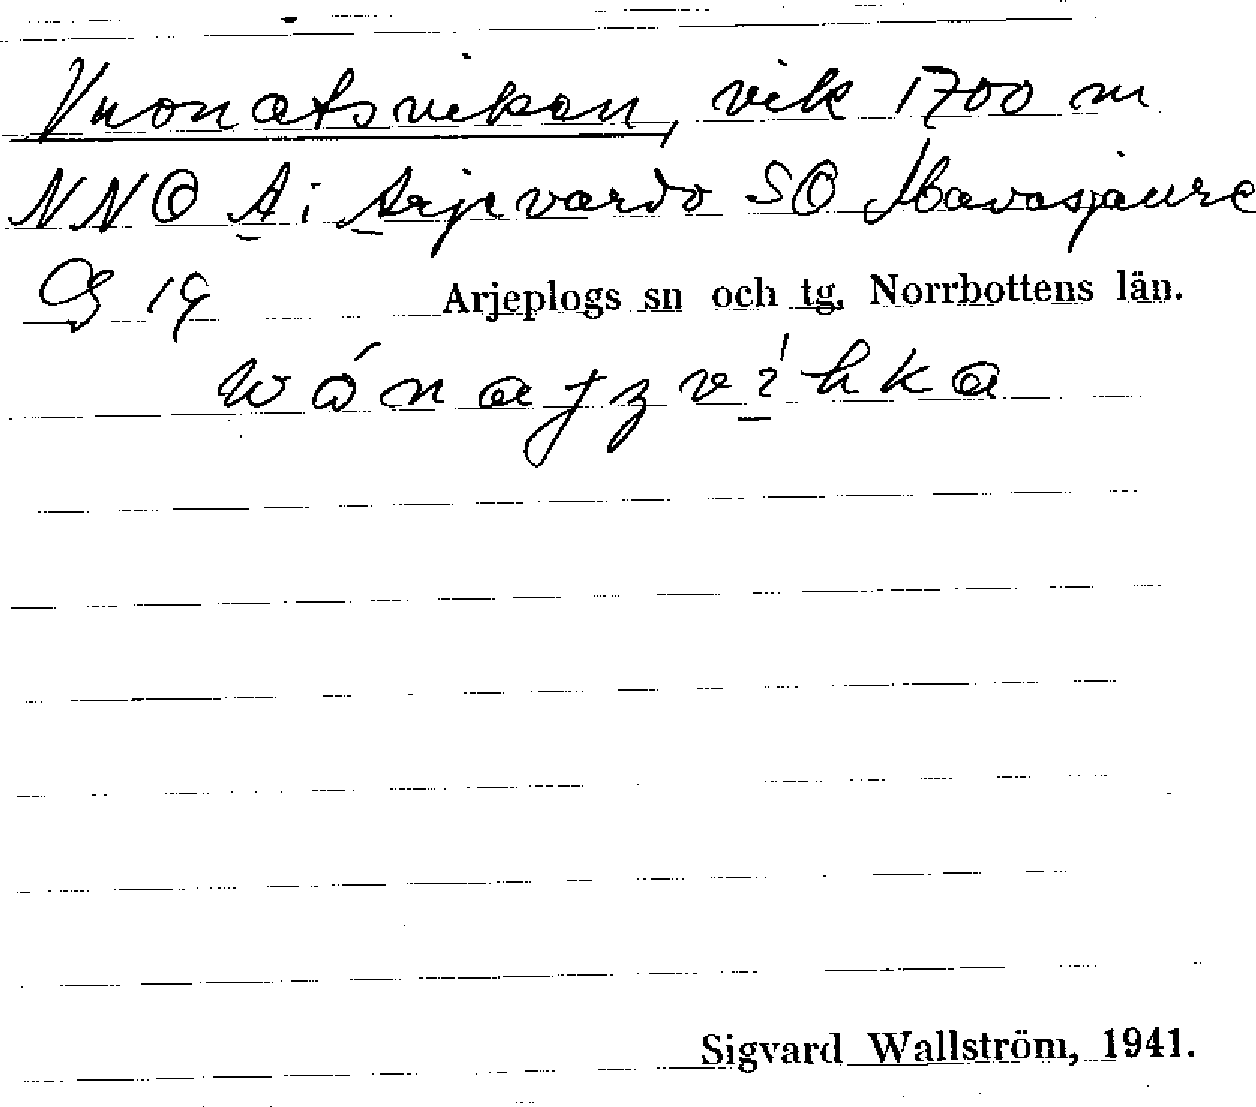 Vuonatsviken, vik 1700 m
NNO A i Arjevardo SO Mavasjaure
19 Arjeplogs sn och tg. Norrbottens län.
wǻnatzvi̱hka
Sigvard Wallström, 1941.